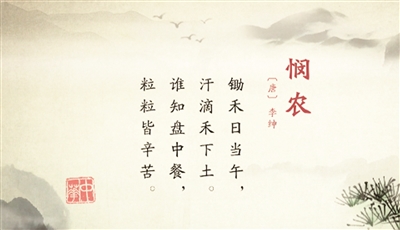 悯农
〔唐〕李绅
锄禾日当午，
汗滴禾下土。
谁知盘中餐，
粒粒皆辛苦。